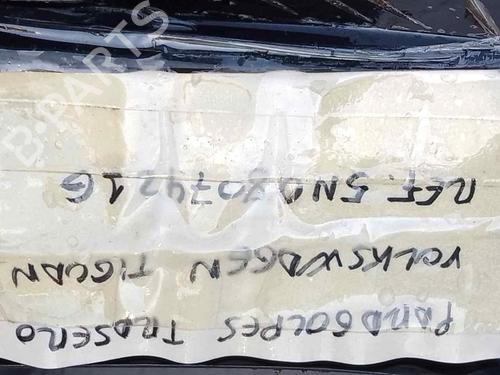 PARAGOLPES TRASERO
VOLKSWAGEN TIGUAN
REF. 5N0807421G
B-PARTS